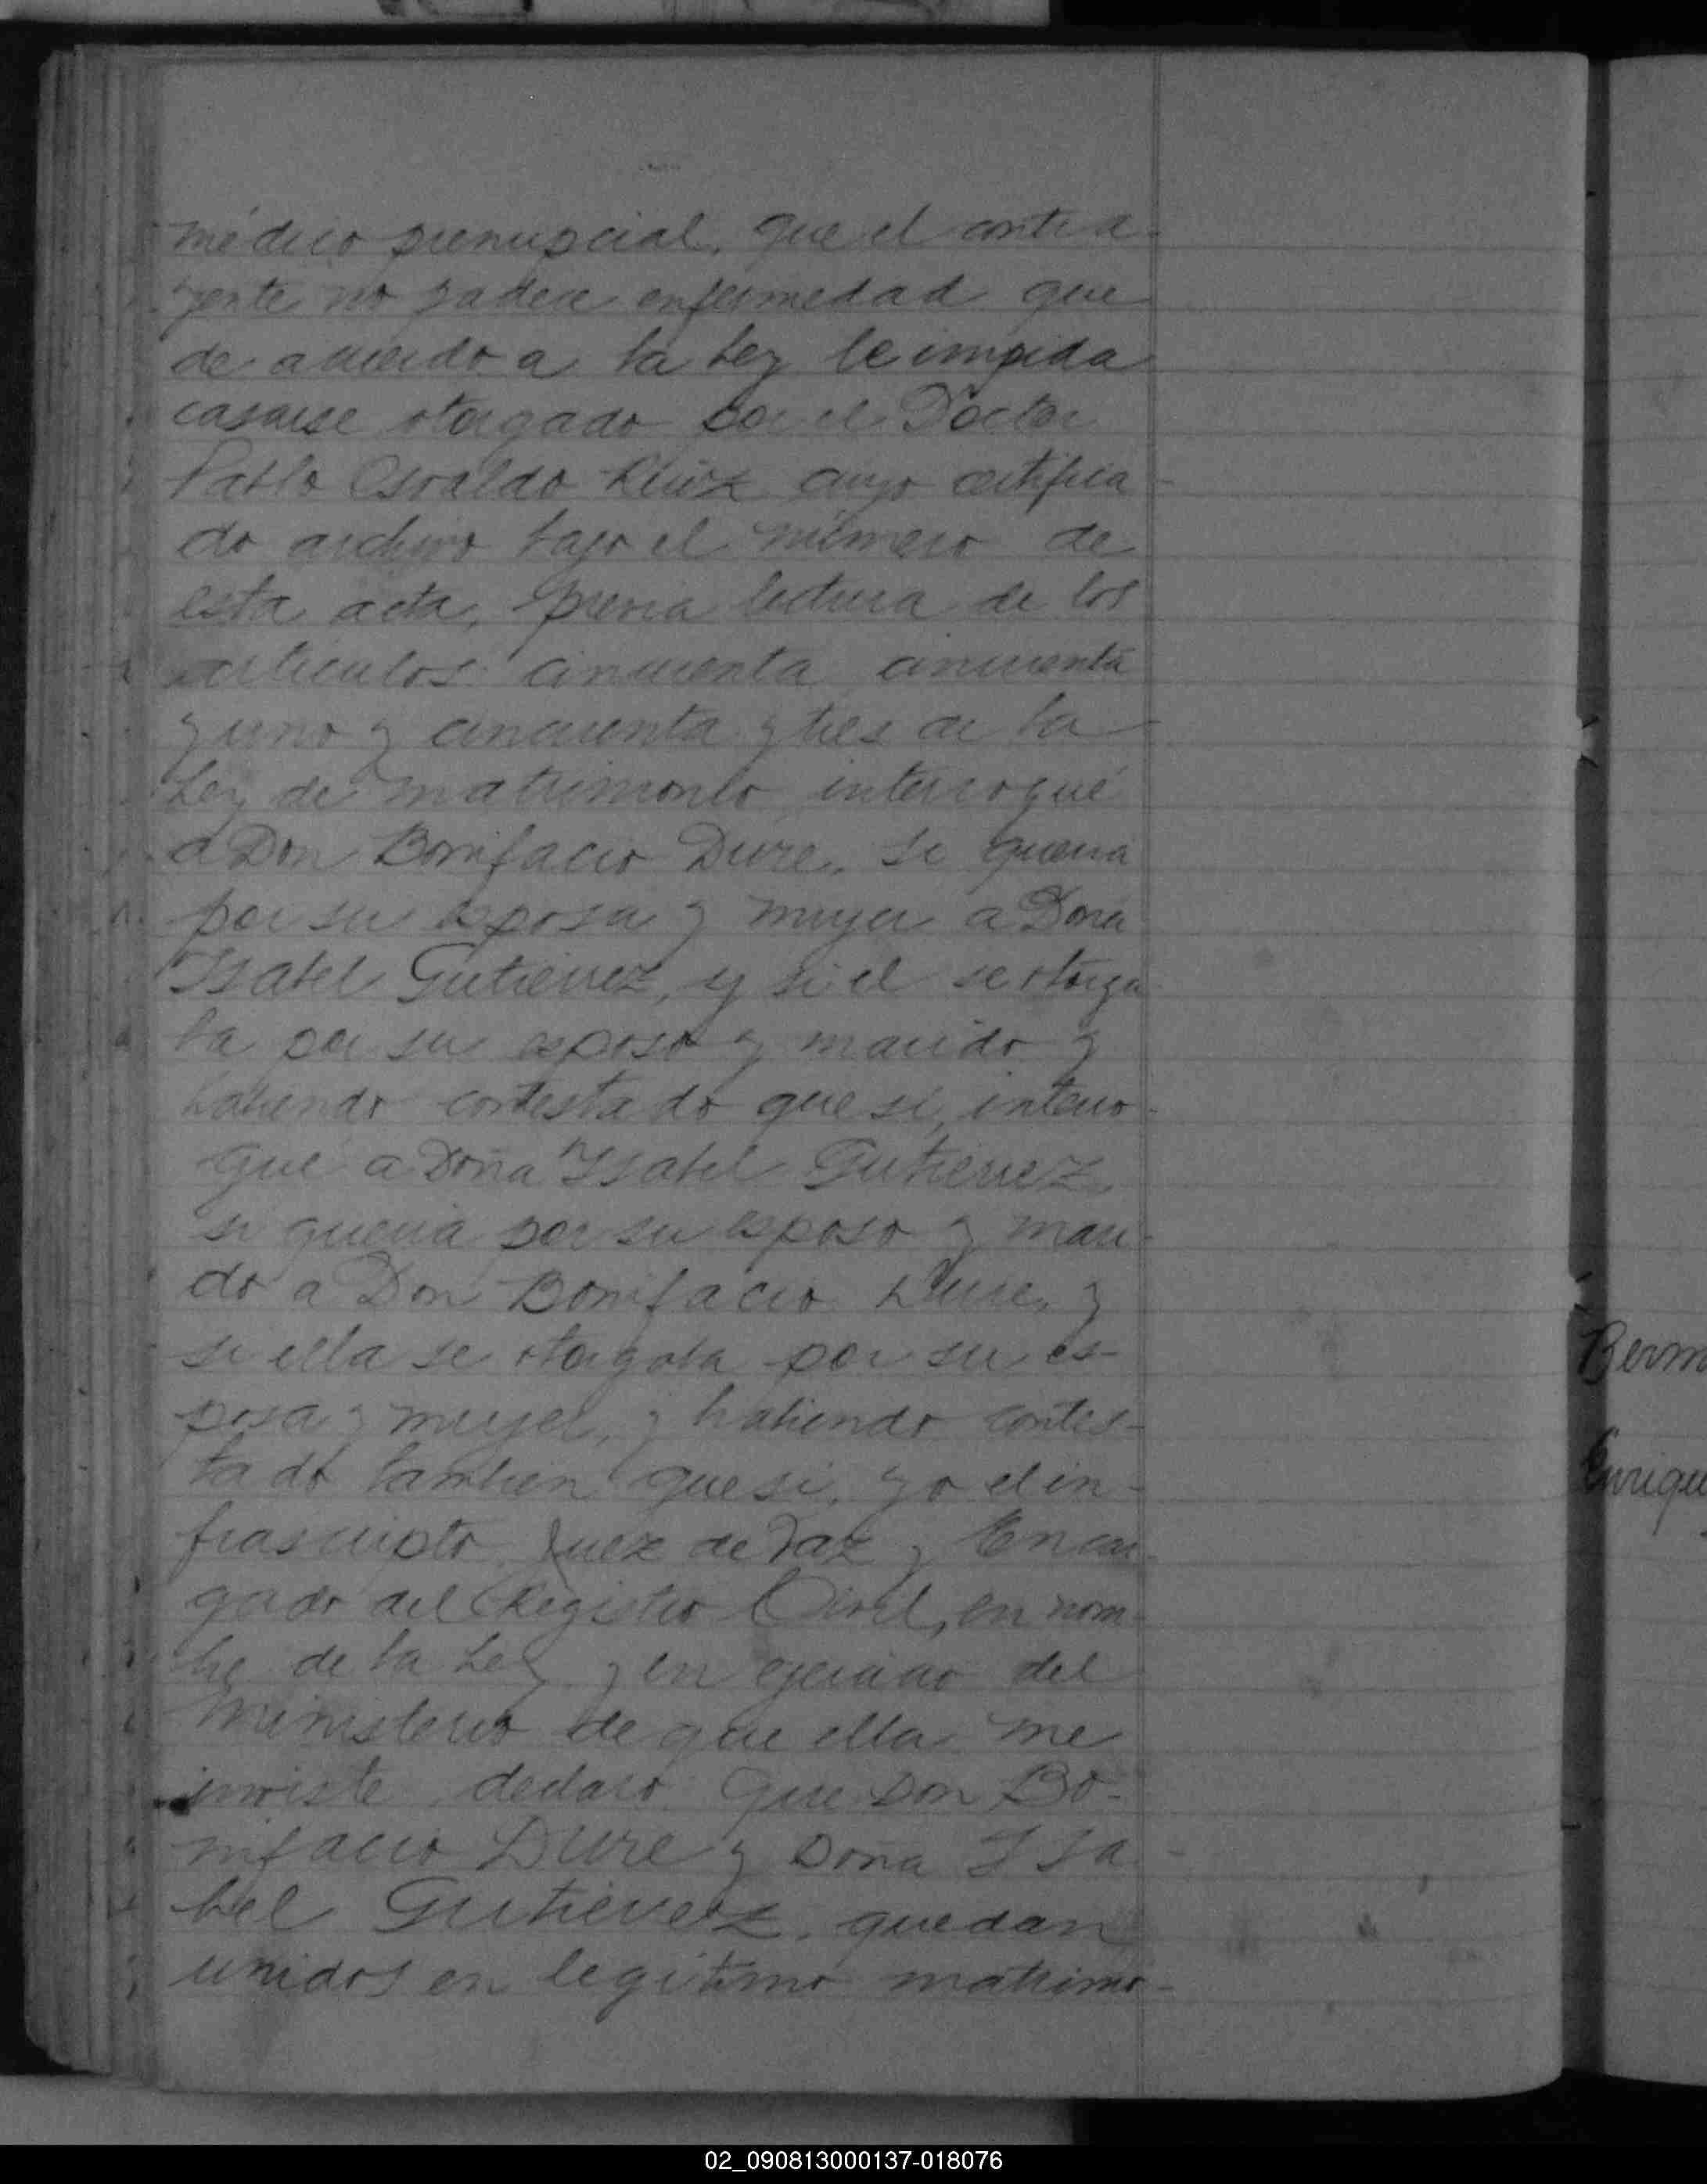 médico prenupcial, que el contra-
yente no padece enfermedad que
de acuerdo a la Ley le impida
casarse otorgado por el Doctor
Pablo Osvaldo cuyo certifica-
do archivo bajo el número de
esta acta, previa lectura de los
artículos cincuenta cincuenta
y uno y cincuenta y tres de la
Ley de matrimonio interrogué
a Don Bonifacio Dure, si quería
por su esposa y mujer a Doña
Isabel Gutierrez, y si el se otorga-
ba por su esposo y marido y
habiendo contestado que sí, interro-
gué a Doña Isabel Gutierrez,
si quería por su esposo y mari-
do a Don Bonifacio Dure, y
si ella se otorgaba por su es-
posa y mujer, y habiendo contes-
tado tambien que si, yo el in-
frascripto Juez de Paz y Encar-
gado del Registro Civil, en nom-
bre de la Ley y en ejercicio del
Ministerio de que ella me
inviste, declaro que Don Bo-
nifacio Dure y Doña Isa-
bel Gutierrez, quedan
unidos en legítimo matrimo-
Berm
Enriqu
02_090813000137-018076